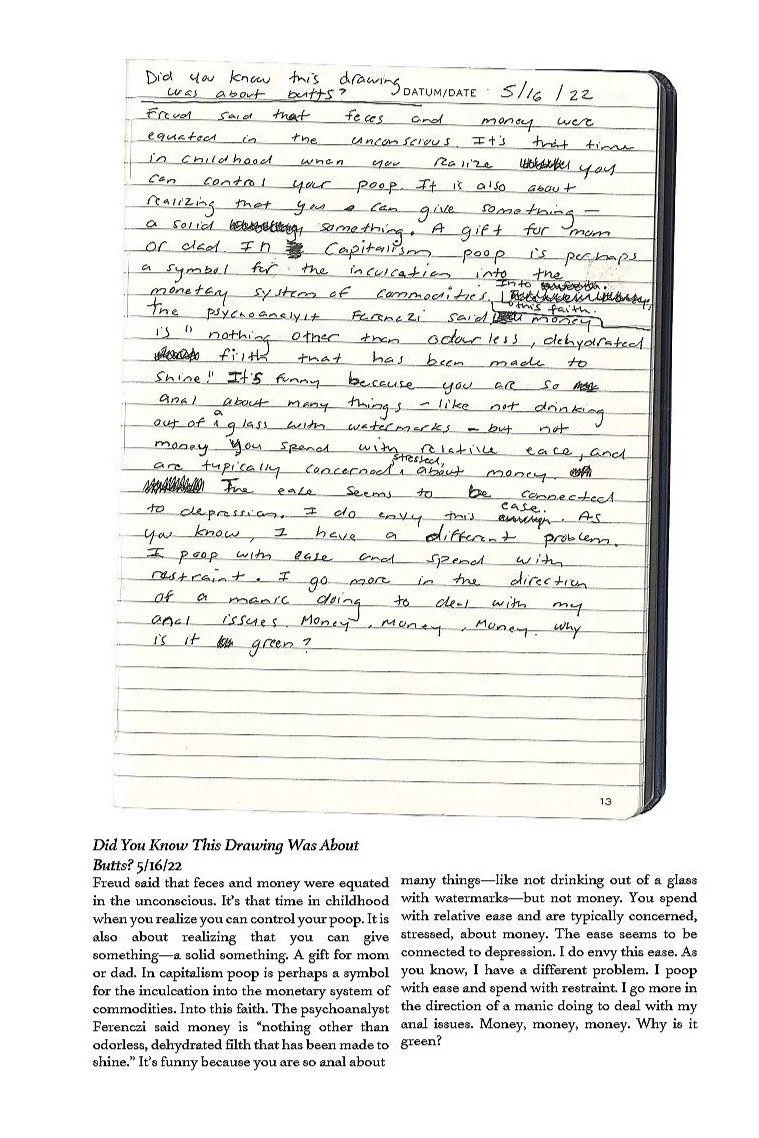 Did you know this drawing
was about butts? DATUM/DATE 5/16/22
Freud said that feces and money were
equated in the unconscious. It's that time
in childhood when you realize you
can control your poop. It is also about
realizing that you can give something —
a solid something. A gift for mom
or dad. In Capitalism poop is perhaps
a symbol for the inculcation into the
monetary system of commodities. Into
this faith.
The psychoanalyst Ferenczi said money
is "nothing other than odourless, dehydrated
filth that has been made to
shine." It's funny because you are so
anal about many things – like not drinking
out of a glass with watermarks – but not
money. You spend with relative ease, and
are typically concerned, stressed, about money.
The ease seems to be connected
to depression. I do envy this ease. As
you know, I have a different problem.
I poop with ease and spend with
restraint. I go more in the direction
of a manic doing to deal with my
anal issues. Money, Money, Money. Why
is it green?
13
Did You Know This Drawing Was About
Butts? 5/16/22
Freud said that feces and money were equated
in the unconscious. It's that time in childhood
when you realize you can control your poop. It is
also about realizing that you can give
something—a solid something. A gift for mom
or dad. In capitalism poop is perhaps a symbol
for the inculcation into the monetary system of
commodities. Into this faith. The psychoanalyst
Ferenczi said money is “nothing other than
odorless, dehydrated filth that has been made to
shine.” It's funny because you are so anal about
many things—like not drinking out of a glass
with watermarks—but not money. You spend
with relative ease and are typically concerned,
stressed, about money. The ease seems to be
connected to depression. I do envy this ease. As
you know, I have a different problem. I poop
with ease and spend with restraint. I go more in
the direction of a manic doing to deal with my
anal issues. Money, money, money. Why is it
green?